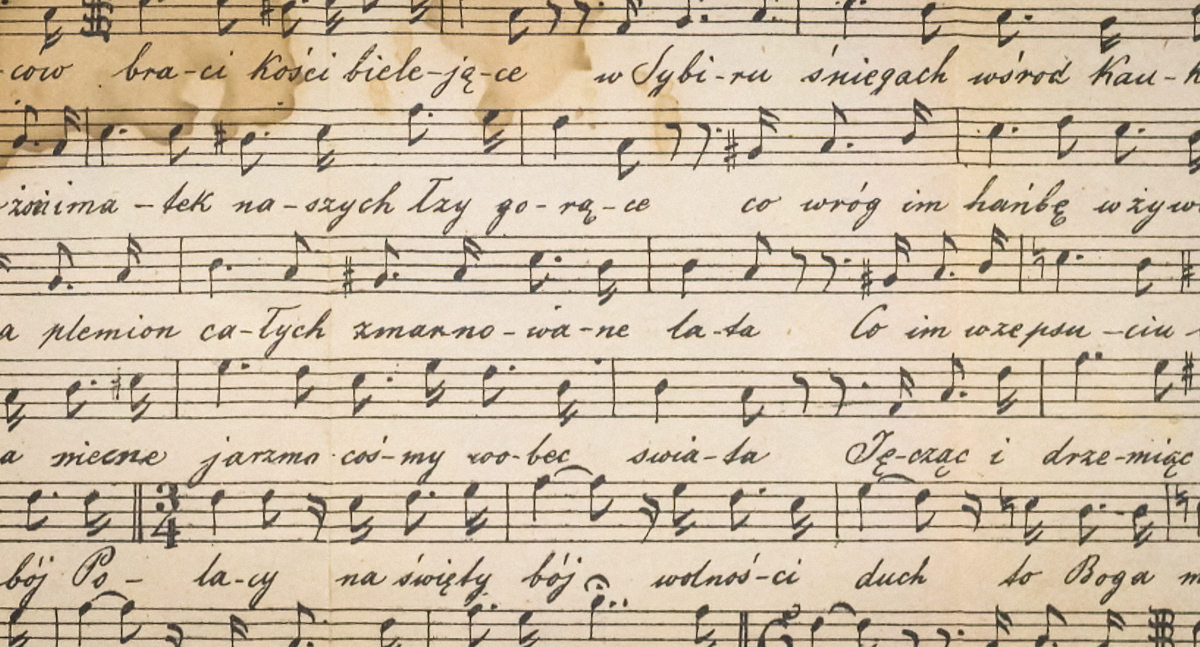 -cow bra-ci kości biele-ją-ce w Sybi-ru śniegach wśrod Kau-k
żon i ma-tek na-szych łzy go-rą-ce co wróg im hańbę w żyw
a plemion ca-łych zmarno-wa-ne la-ta Co im wzepsu-ciu-
a niecne jarzmo coś-my wo-bec swia-ta Ję-cząc i drze-miąc
bój Po- la-cy na święty bój wolnoś-ci duch to Boga m
3/4